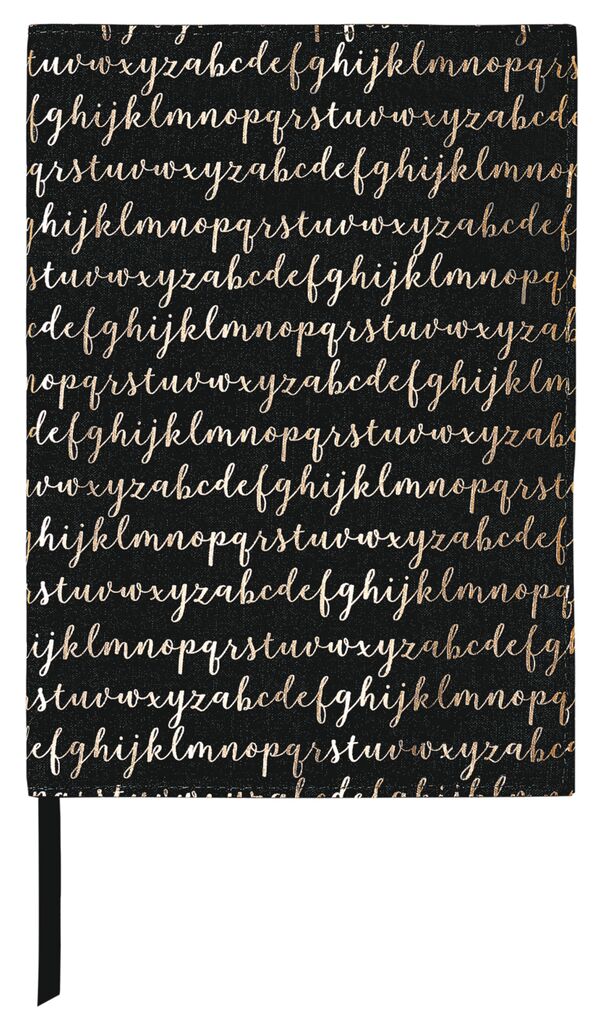 tuvwxyzabcdefghijklmnopqrs
fghijklmnopqrstuvwxyzabcde
qrstuvwxyzabcdefghijklmnop
ghijklmnopqrstuvwxyzabcdef
stuvwxyzabcdefghijklmnopqr
cdefghijklmnopqrstuvwxyzab
nopqrstuvwxyzabcdefghijklm
defghijklmnopqrstuvwxyzabc
vwxyzabcdefghijklmnopqrst
ghijklmnopqrstuvwxyzabcdef
rstuvwxyzabcdefghijklmnopq
ijklmnopqrstuvwxyzabcdefgh
rstuvwxyzabcdefghijklmnopq
defghijklmnopqrstuvwxyzabc
nopqrstuvwxyzabcdefghijklmnop